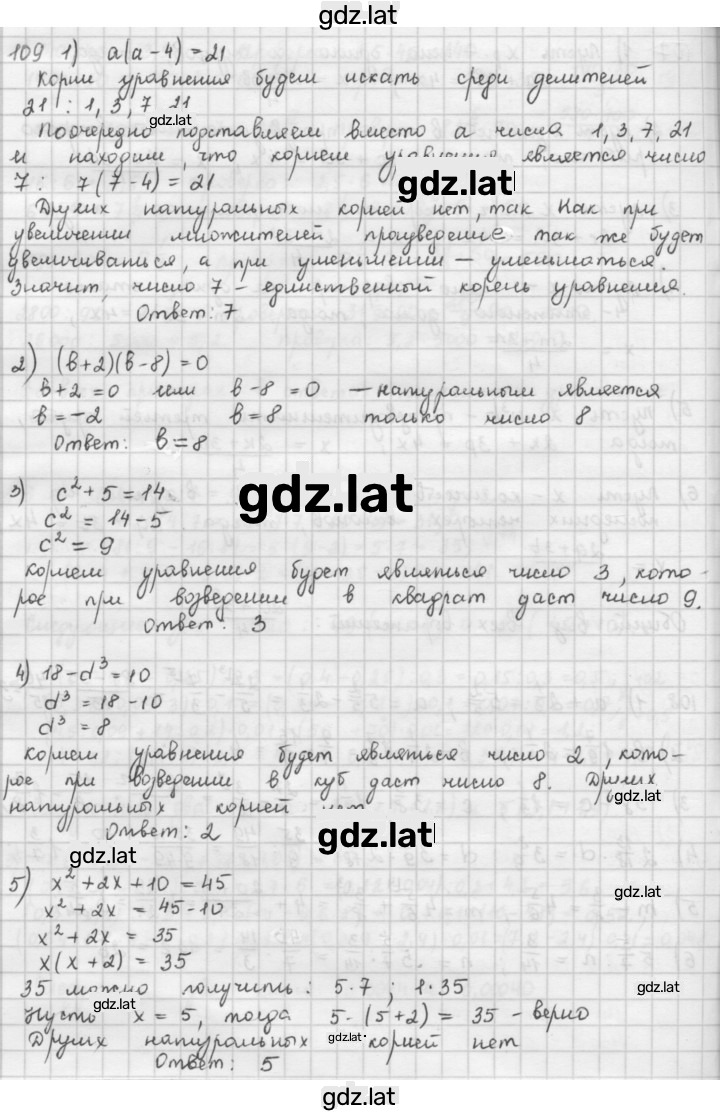 gdz.lat
109 1) a(a-4)=21
Корни уравнения будем искать среди делителей
21: 1, 3, 7 21
gdz.lat
Поочередно подставляем вместо а числа 1, 3, 7, 21
и находим, что корнем уравнения является число
7: 7(7-4)=21
gdz.lat
Других натуральных корней нет, так как при
увеличении множителей произведение так же будет
увеличиваться, а при уменьшении - уменьшаться.
Значит, число 7 - единственный корень уравнения.
Ответ: 7
2) (b+2)(b-8)=0
b+2=0 или b-8=0 - натуральным является
b=-2 b=8 только число 8
Ответ: b=8
gdz.lat
3) c²+5=14
c²=14-5
c²=9
корнем уравнения будет являться число 3, кото-
рое при возведении в квадрат даст число 9.
Ответ: 3
4) 18-d³=10
d³=18-10
d³=8
корнем уравнения будет являться число 2, кото-
рое при возведении в куб даст число 8. Других
gdz.lat
натуральных корней нет
Ответ: 2
gdz.lat
gdz.lat
5) x²+2x+10=45
gdz.lat
x²+2x=45-10
x²+2x=35
x(x+2)=35
35 можно получить: 5·7; 1·35
gdz.lat
gdz.lat
Пусть x=5, тогда 5·(5+2)=35 - верно
Других натуральных корней нет
gdz.lat
Ответ: 5
gdz.lat